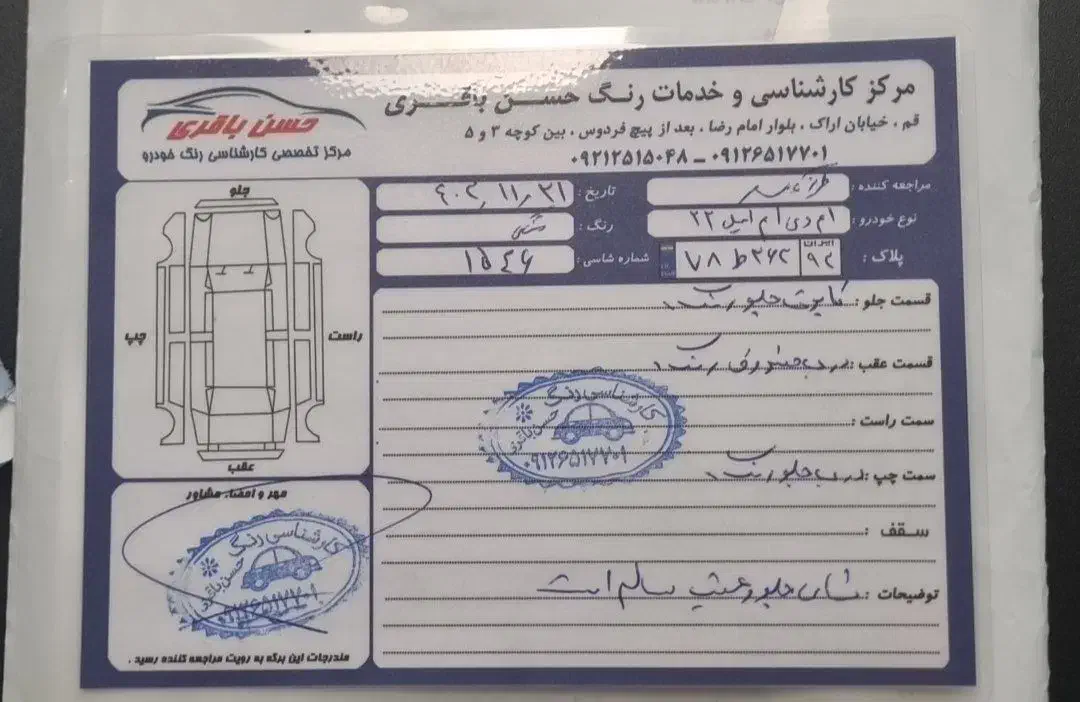 مرکز کارشناسی و خدمات رنگ حسن باقری
قم ، خیابان اراک ، بلوار امام رضا ، بعد از پیچ فردوس ، بین کوچه ۳ و ۵
۰۹۱۲۶۵۱۷۷۰۱ ــ ۰۹۲۱۲۵۱۵۰۴۸
حسن باقری
مرکز تخصصی کارشناسی رنگ خودرو
مراجعه کننده :
تاریخ : ۴۰۲,۱۱,۲۱
نوع خودرو : ام وی ام ایکس ۲۲
رنگ : مشکی
پلاک : ایران ۹۲ ۳۶۲ ط ۷۸
شماره شاسی : ۱۵۴۶
جلو
چپ
راست
عقب
قسمت جلو : کاپوت جلو رنگ
قسمت عقب : درب صندوق رنگ
سمت راست :
سمت چپ : درب جلو رنگ
سقف :
توضیحات : شاسی جلو و عقب سالم است
کارشناسی رنگ
حسن باقری
۰۹۱۲۶۵۱۷۷۰۱
مهر و امضاء مشاور
کارشناسی رنگ
حسن باقری
۰۹۱۲۶۵۱۷۷۰۱
مندرجات این برگه به رویت مراجعه کننده رسید .